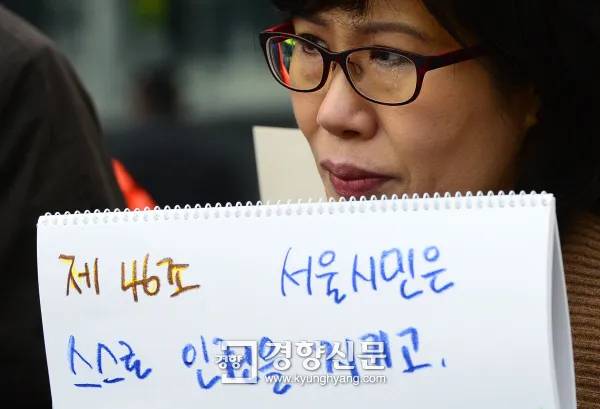 제 46조 서울시민은
스스로 인권을 지키고.
경향 경향신문
www.kyunghyang.com